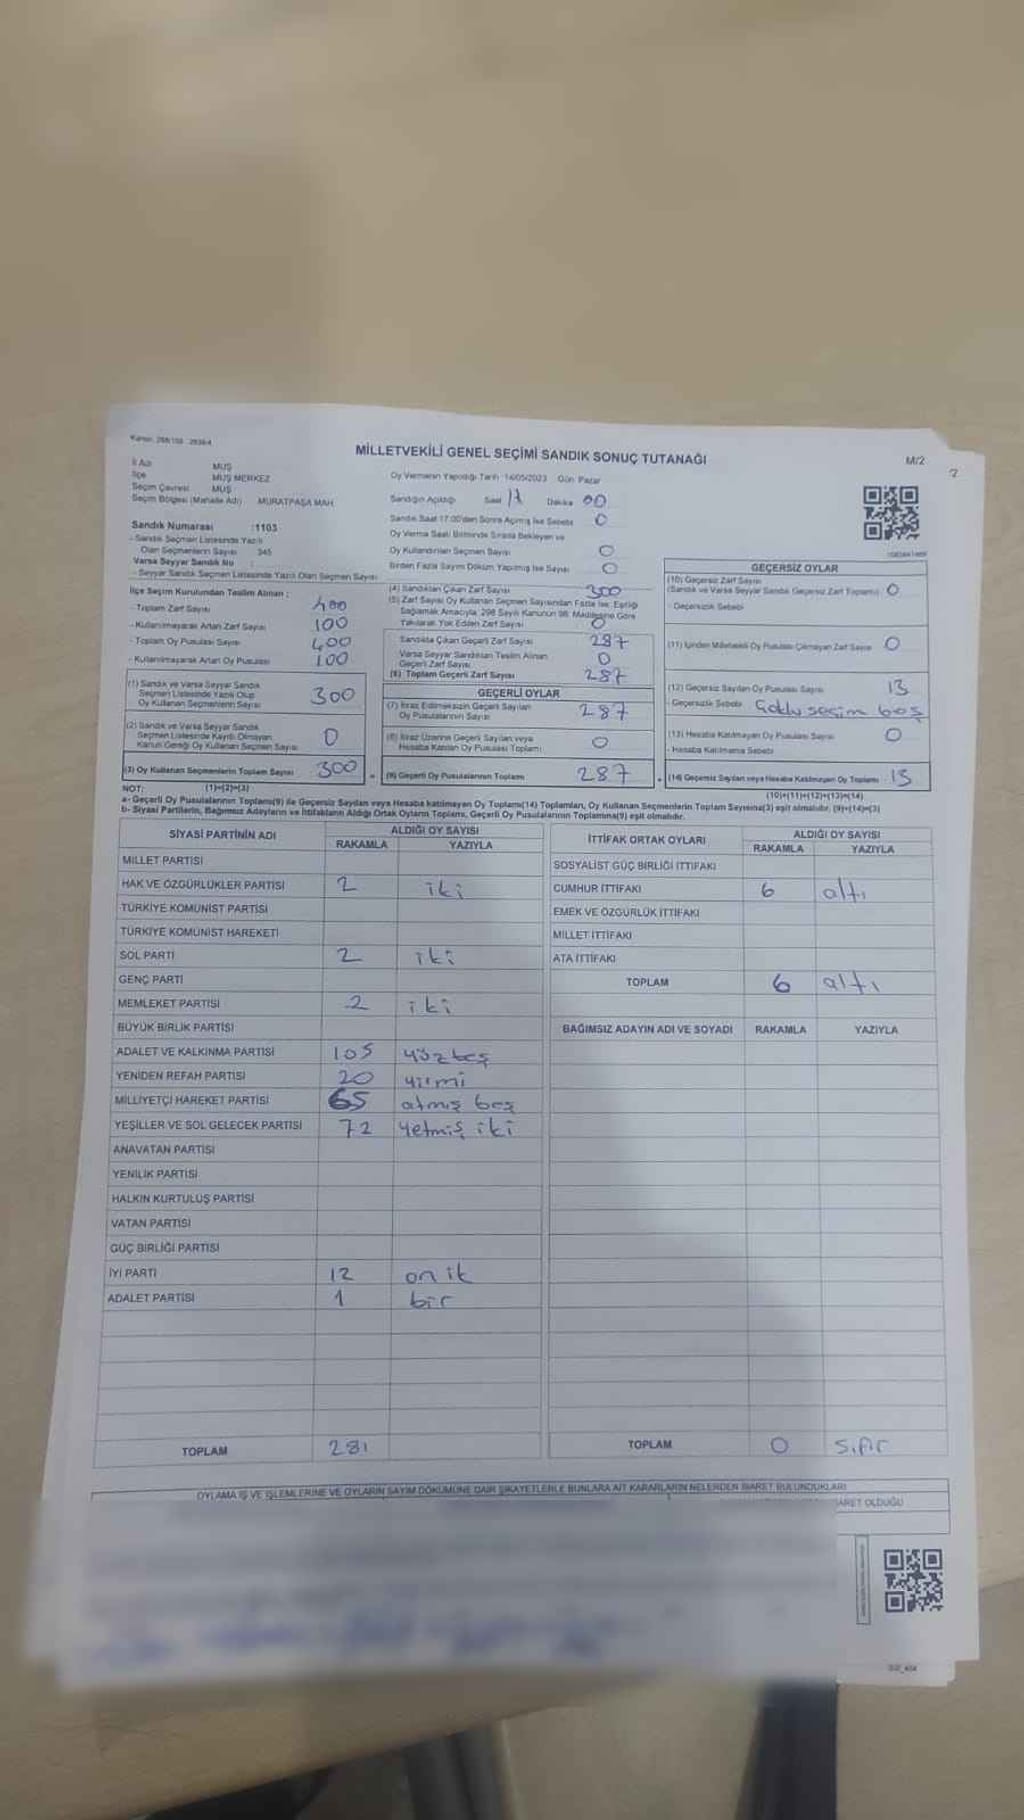 MİLLETVEKİLİ GENEL SEÇİMİ SANDIK SONUÇ TUTANAĞI
M/2
2
İl Adı MUŞ
İlçe MUŞ MERKEZ
Seçim Çevresi MUŞ
Seçim Bölgesi (Mahalle Adı) MURATPAŞA MAH.
Oy Vermenin Yapıldığı Tarih 14/05/2023 Gün Pazar
Sandığın Açıldığı Saat 17 Dakika 00
Sandık Saat 17:00'den Sonra Açılmış İse Sebebi 0
Oy Verme Saati Bitiminde Sırada Bekleyen ve
Oy Kullandırılan Seçmen Sayısı 0
Birden Fazla Sayım Döküm Yapılmış İse Sayısı 0
Sandık Numarası :1103
- Sandık Seçmen Listesinde Yazılı
Olan Seçmenlerin Sayısı 345
Varsa Seyyar Sandık No :
- Seyyar Sandık Seçmen Listesinde Yazılı Olan Seçmen Sayısı
İlçe Seçim Kurulundan Teslim Alınan :
- Toplam Zarf Sayısı 400
- Kullanılmayarak Artan Zarf Sayısı 100
- Toplam Oy Pusulası Sayısı 400
- Kullanılmayarak Artan Oy Pusulası 100
(1) Sandık ve Varsa Seyyar Sandık
Seçmen Listesinde Yazılı Olup
Oy Kullanan Seçmenlerin Sayısı 300
(2) Sandık ve Varsa Seyyar Sandık
Seçmen Listesinde Kayıtlı Olmayan
Kanun Gereği Oy Kullanan Seçmen Sayısı 0
(3) Oy Kullanan Seçmenlerin Toplam Sayısı 300
(4) Sandıktan Çıkan Zarf Sayısı 300
(5) Zarf Sayısı Oy Kullanan Seçmen Sayısından Fazla İse, Eşitliği
Sağlamak Amacıyla, 298 Sayılı Kanunun 98. Maddesine Göre
Yakılarak Yok Edilen Zarf Sayısı 0
Sandıkta Çıkan Geçerli Zarf Sayısı 287
Varsa Seyyar Sandıktan Teslim Alınan
Geçerli Zarf Sayısı 0
(6) Toplam Geçerli Zarf Sayısı 287
GEÇERLİ OYLAR
(7) İtiraz Edilmeksizin Geçerli Sayılan
Oy Pusulalarının Sayısı 287
(8) İtiraz Üzerine Geçerli Sayılan veya
Hesaba Katılan Oy Pusulası Toplamı 0
(9) Geçerli Oy Pusulalarının Toplamı 287
GEÇERSİZ OYLAR
(10) Geçersiz Zarf Sayısı
(Sandık ve Varsa Seyyar Sandık Geçersiz Zarf Toplamı) 0
- Geçersizlik Sebebi
(11) İçinden Milletvekili Oy Pusulası Çıkmayan Zarf Sayısı 0
(12) Geçersiz Sayılan Oy Pusulası Sayısı 13
- Geçersizlik Sebebi Çoklu seçim boş
(13) Hesaba Katılmayan Oy Pusulası Sayısı 0
- Hesaba Katılmama Sebebi
(14) Geçersiz Sayılan veya Hesaba Katılmayan Oy Toplamı 13
NOT: (1)+(2)=(3)
(10)+(11)+(12)+(13)=(14)
a- Geçerli Oy Pusulalarının Toplamı(9) ile Geçersiz Sayılan veya Hesaba katılmayan Oy Toplamı(14) Toplamları, Oy Kullanan Seçmenlerin Toplam Sayısına(3) eşit olmalıdır. (9)+(14)=(3)
b- Siyasi Partilerin, Bağımsız Adayların ve İttifakların Aldığı Ortak Oyların Toplamı, Geçerli Oy Pusulalarının Toplamına(9) eşit olmalıdır.
SİYASİ PARTİNİN ADI ALDIĞI OY SAYISI
RAKAMLA YAZIYLA
MİLLET PARTİSİ
HAK VE ÖZGÜRLÜKLER PARTİSİ 2 iki
TÜRKİYE KOMÜNİST PARTİSİ
TÜRKİYE KOMÜNİST HAREKETİ
SOL PARTİ 2 iki
GENÇ PARTİ
MEMLEKET PARTİSİ 2 iki
BÜYÜK BİRLİK PARTİSİ
ADALET VE KALKINMA PARTİSİ 105 yüzbeş
YENİDEN REFAH PARTİSİ 20 yirmi
MİLLİYETÇİ HAREKET PARTİSİ 65 atmış beş
YEŞİLLER VE SOL GELECEK PARTİSİ 72 yetmiş iki
ANAVATAN PARTİSİ
YENİLİK PARTİSİ
HALKIN KURTULUŞ PARTİSİ
VATAN PARTİSİ
GÜÇ BİRLİĞİ PARTİSİ
İYİ PARTİ 12 on ik
ADALET PARTİSİ 1 bir
TOPLAM 281
İTTİFAK ORTAK OYLARI ALDIĞI OY SAYISI
RAKAMLA YAZIYLA
SOSYALİST GÜÇ BİRLİĞİ İTTİFAKI
CUMHUR İTTİFAKI 6 altı
EMEK VE ÖZGÜRLÜK İTTİFAKI
MİLLET İTTİFAKI
ATA İTTİFAKI
TOPLAM 6 altı
BAĞIMSIZ ADAYIN ADI VE SOYADI RAKAMLA YAZIYLA
TOPLAM 0 sıfır
OYLAMA İŞ VE İŞLEMLERİNE VE OYLARIN SAYIM DÖKÜMÜNE DAİR ŞİKAYETLERLE BUNLARA AİT KARARLARIN NELERDEN İBARET BULUNDUKLARI
OLDUĞU